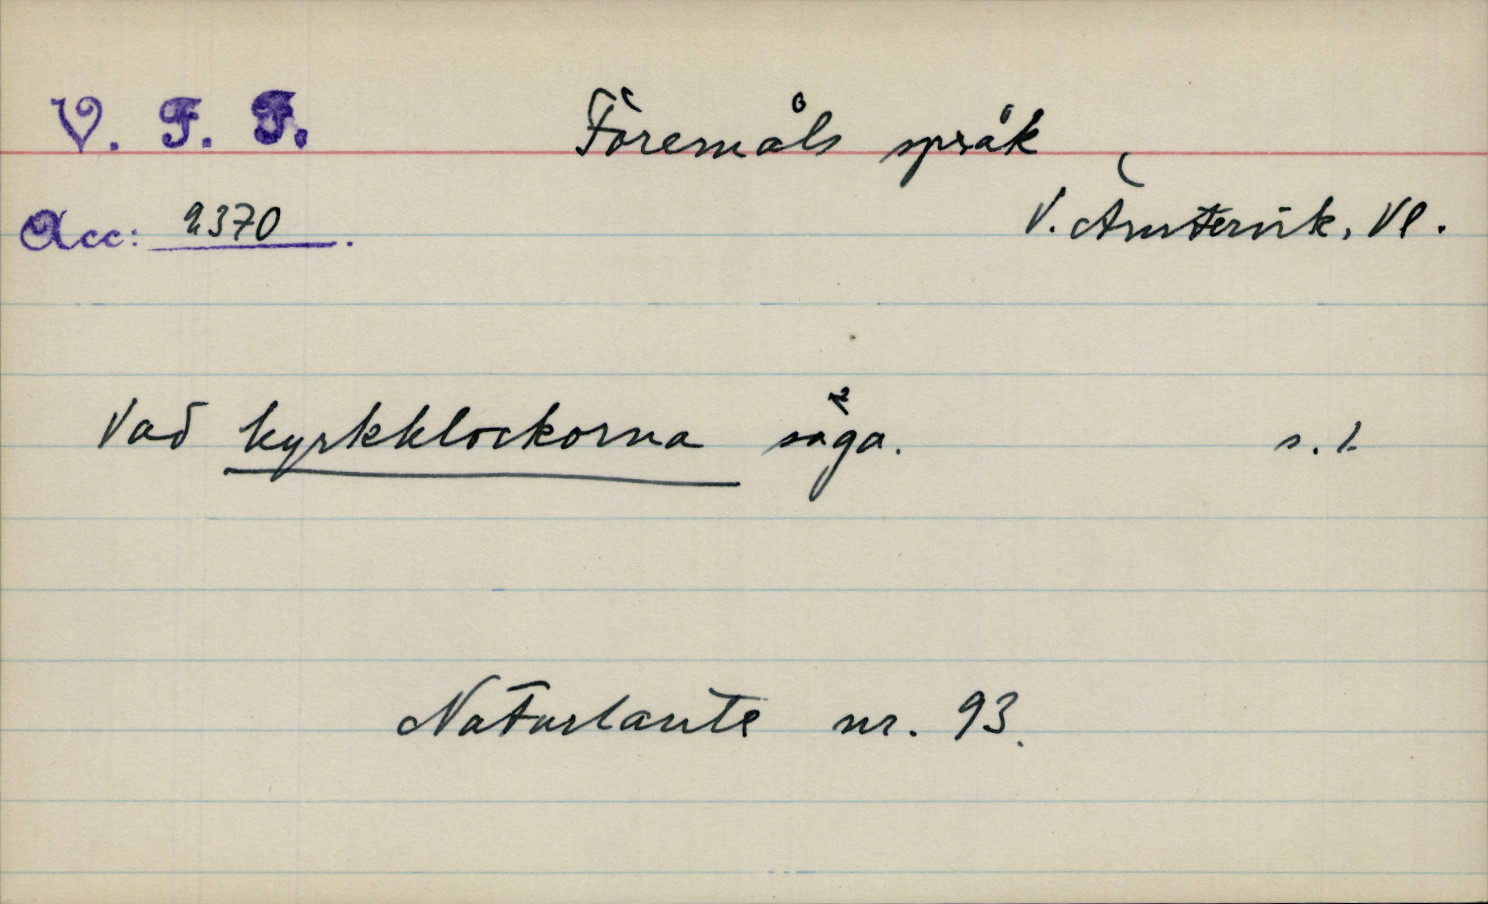 V. F. F. Föremåls språk
Acc: 2370. V. Ämtervik, Vl.
Vad kyrkklockorna säga. s. 1.
Naturlaute nr. 93.